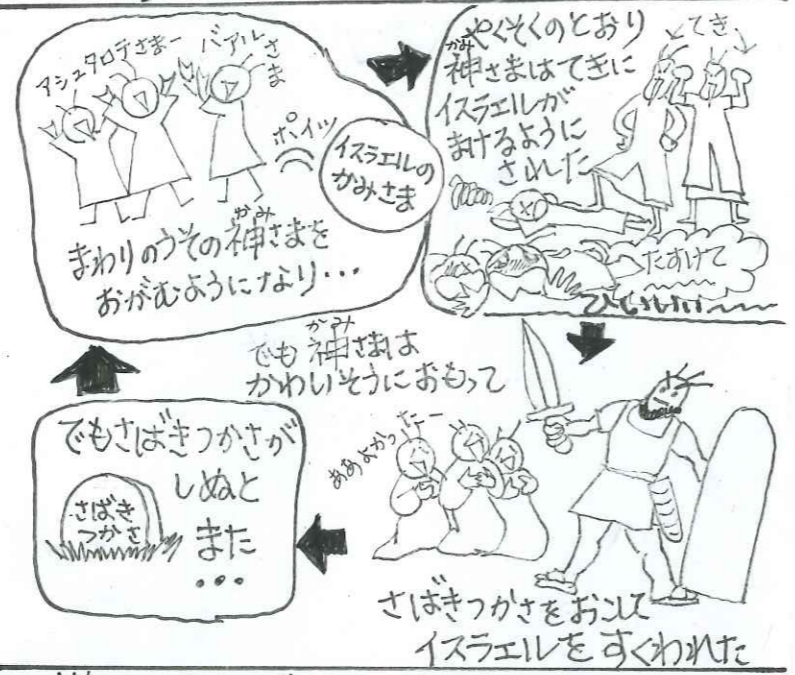 アシュタロテさまー
バアルさま
ポイッ
イスラエルの
かみさま
まわりのうその神さまを
かみ
おがむようになり・・・
やくそくのとおり
かみ
神さまはてきに
イスラエルが
まけるように
された
てき
たすけて
ひいいいい〜〜
でも神さまは
かみ
かわいそうにおもって
ああよかったー
さばきつかさをおこして
イスラエルをすくわれた
でもさばきつかさが
しぬと
また
・・・
さばき
つかさ